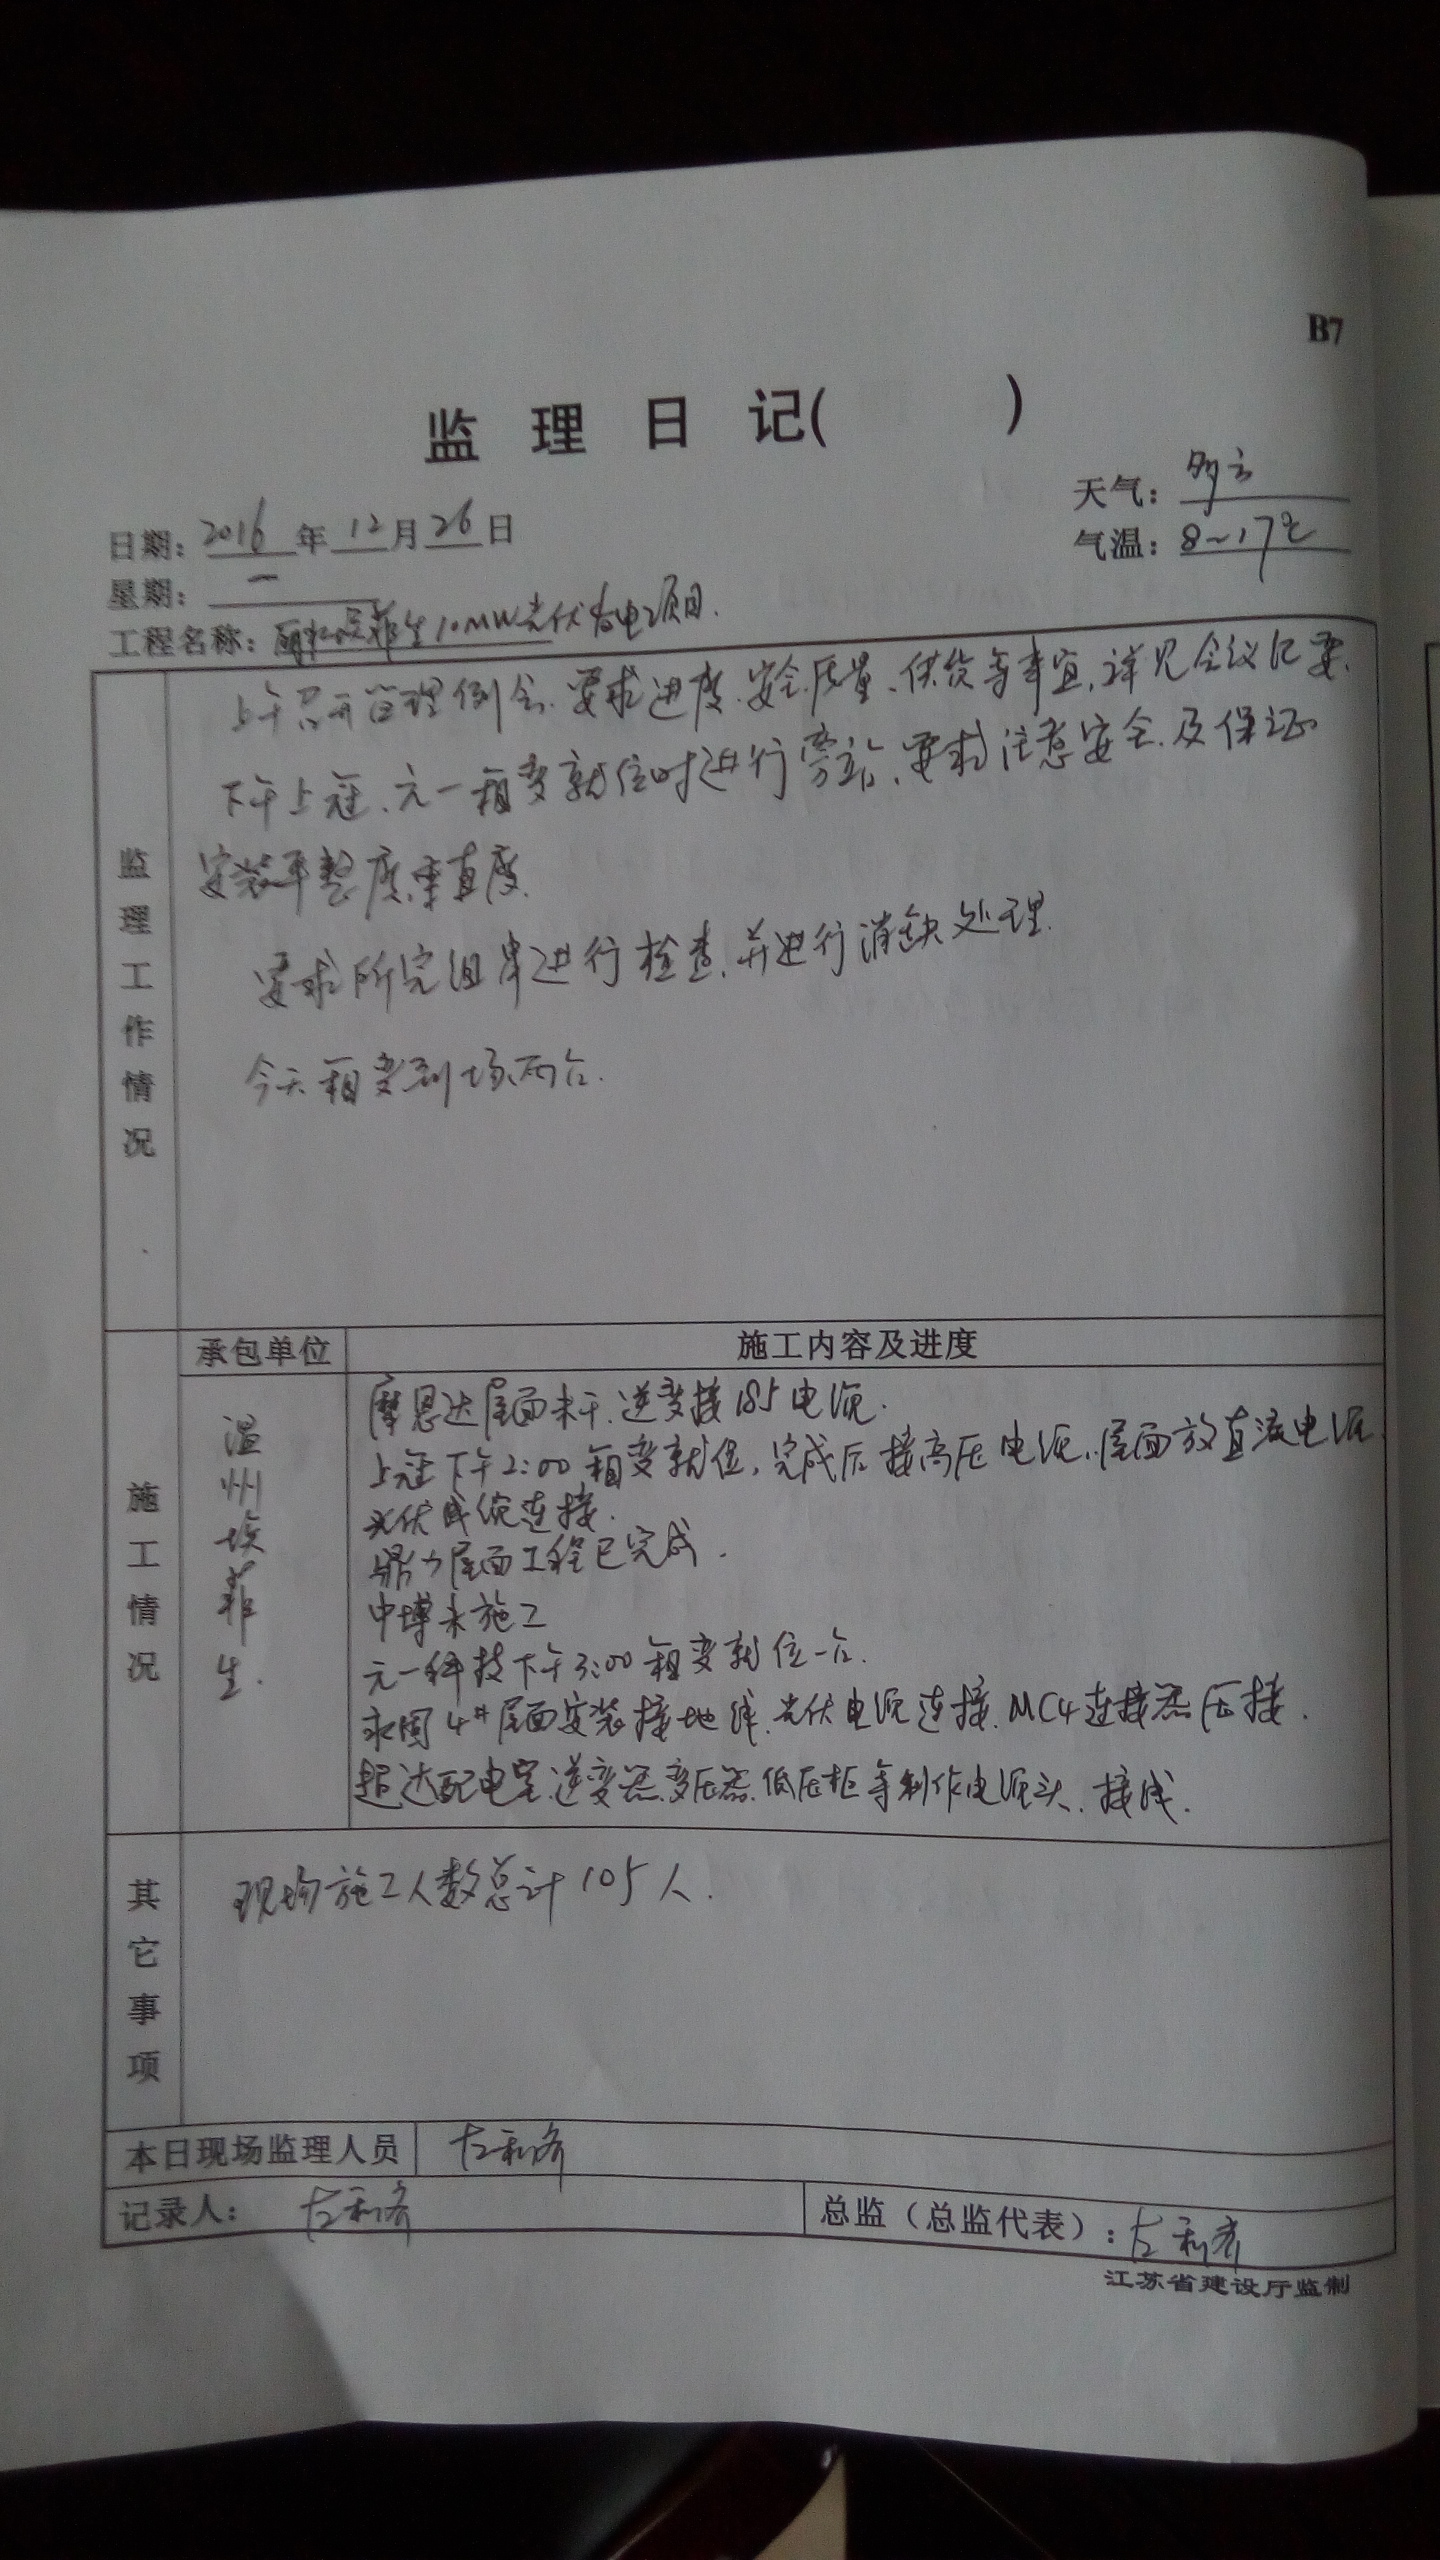 B7
监理日记( )
天气：多云
日期：2016年12月26日
气温：8~17℃
星期：一
工程名称：埃菲生10MW光伏发电项目.
监理工作情况
上午召开监理例会、要求进度、安全、质量、供货等事宜,详见会议记要.
下午上冠、元一箱变就位时进行旁站、要求注意安全、及保证
安装平整度、垂直度.
要求所完组串进行检查,并进行消缺处理.
今天箱变到场两台.
承包单位 施工内容及进度
施工情况
温州埃菲生.
摩恩达屋面未干.逆变接185电源.
上冠下午2:00箱变就位,完成后接高压电源,屋面放直流电源
光伏连接.
鼎力屋面工程已完成.
中博未施工
元一科技下午3:00箱变就位一台.
永固4#屋面安装接地线.光伏电源连接.MC4连接器压接.
超达配电室.逆变器.变压器.低压柜等制作电源头.接线.
其它事项
现场施工人数总计105人.
本日现场监理人员 左利
记录人：左利
总监（总监代表）：左利
江苏省建设厅监制